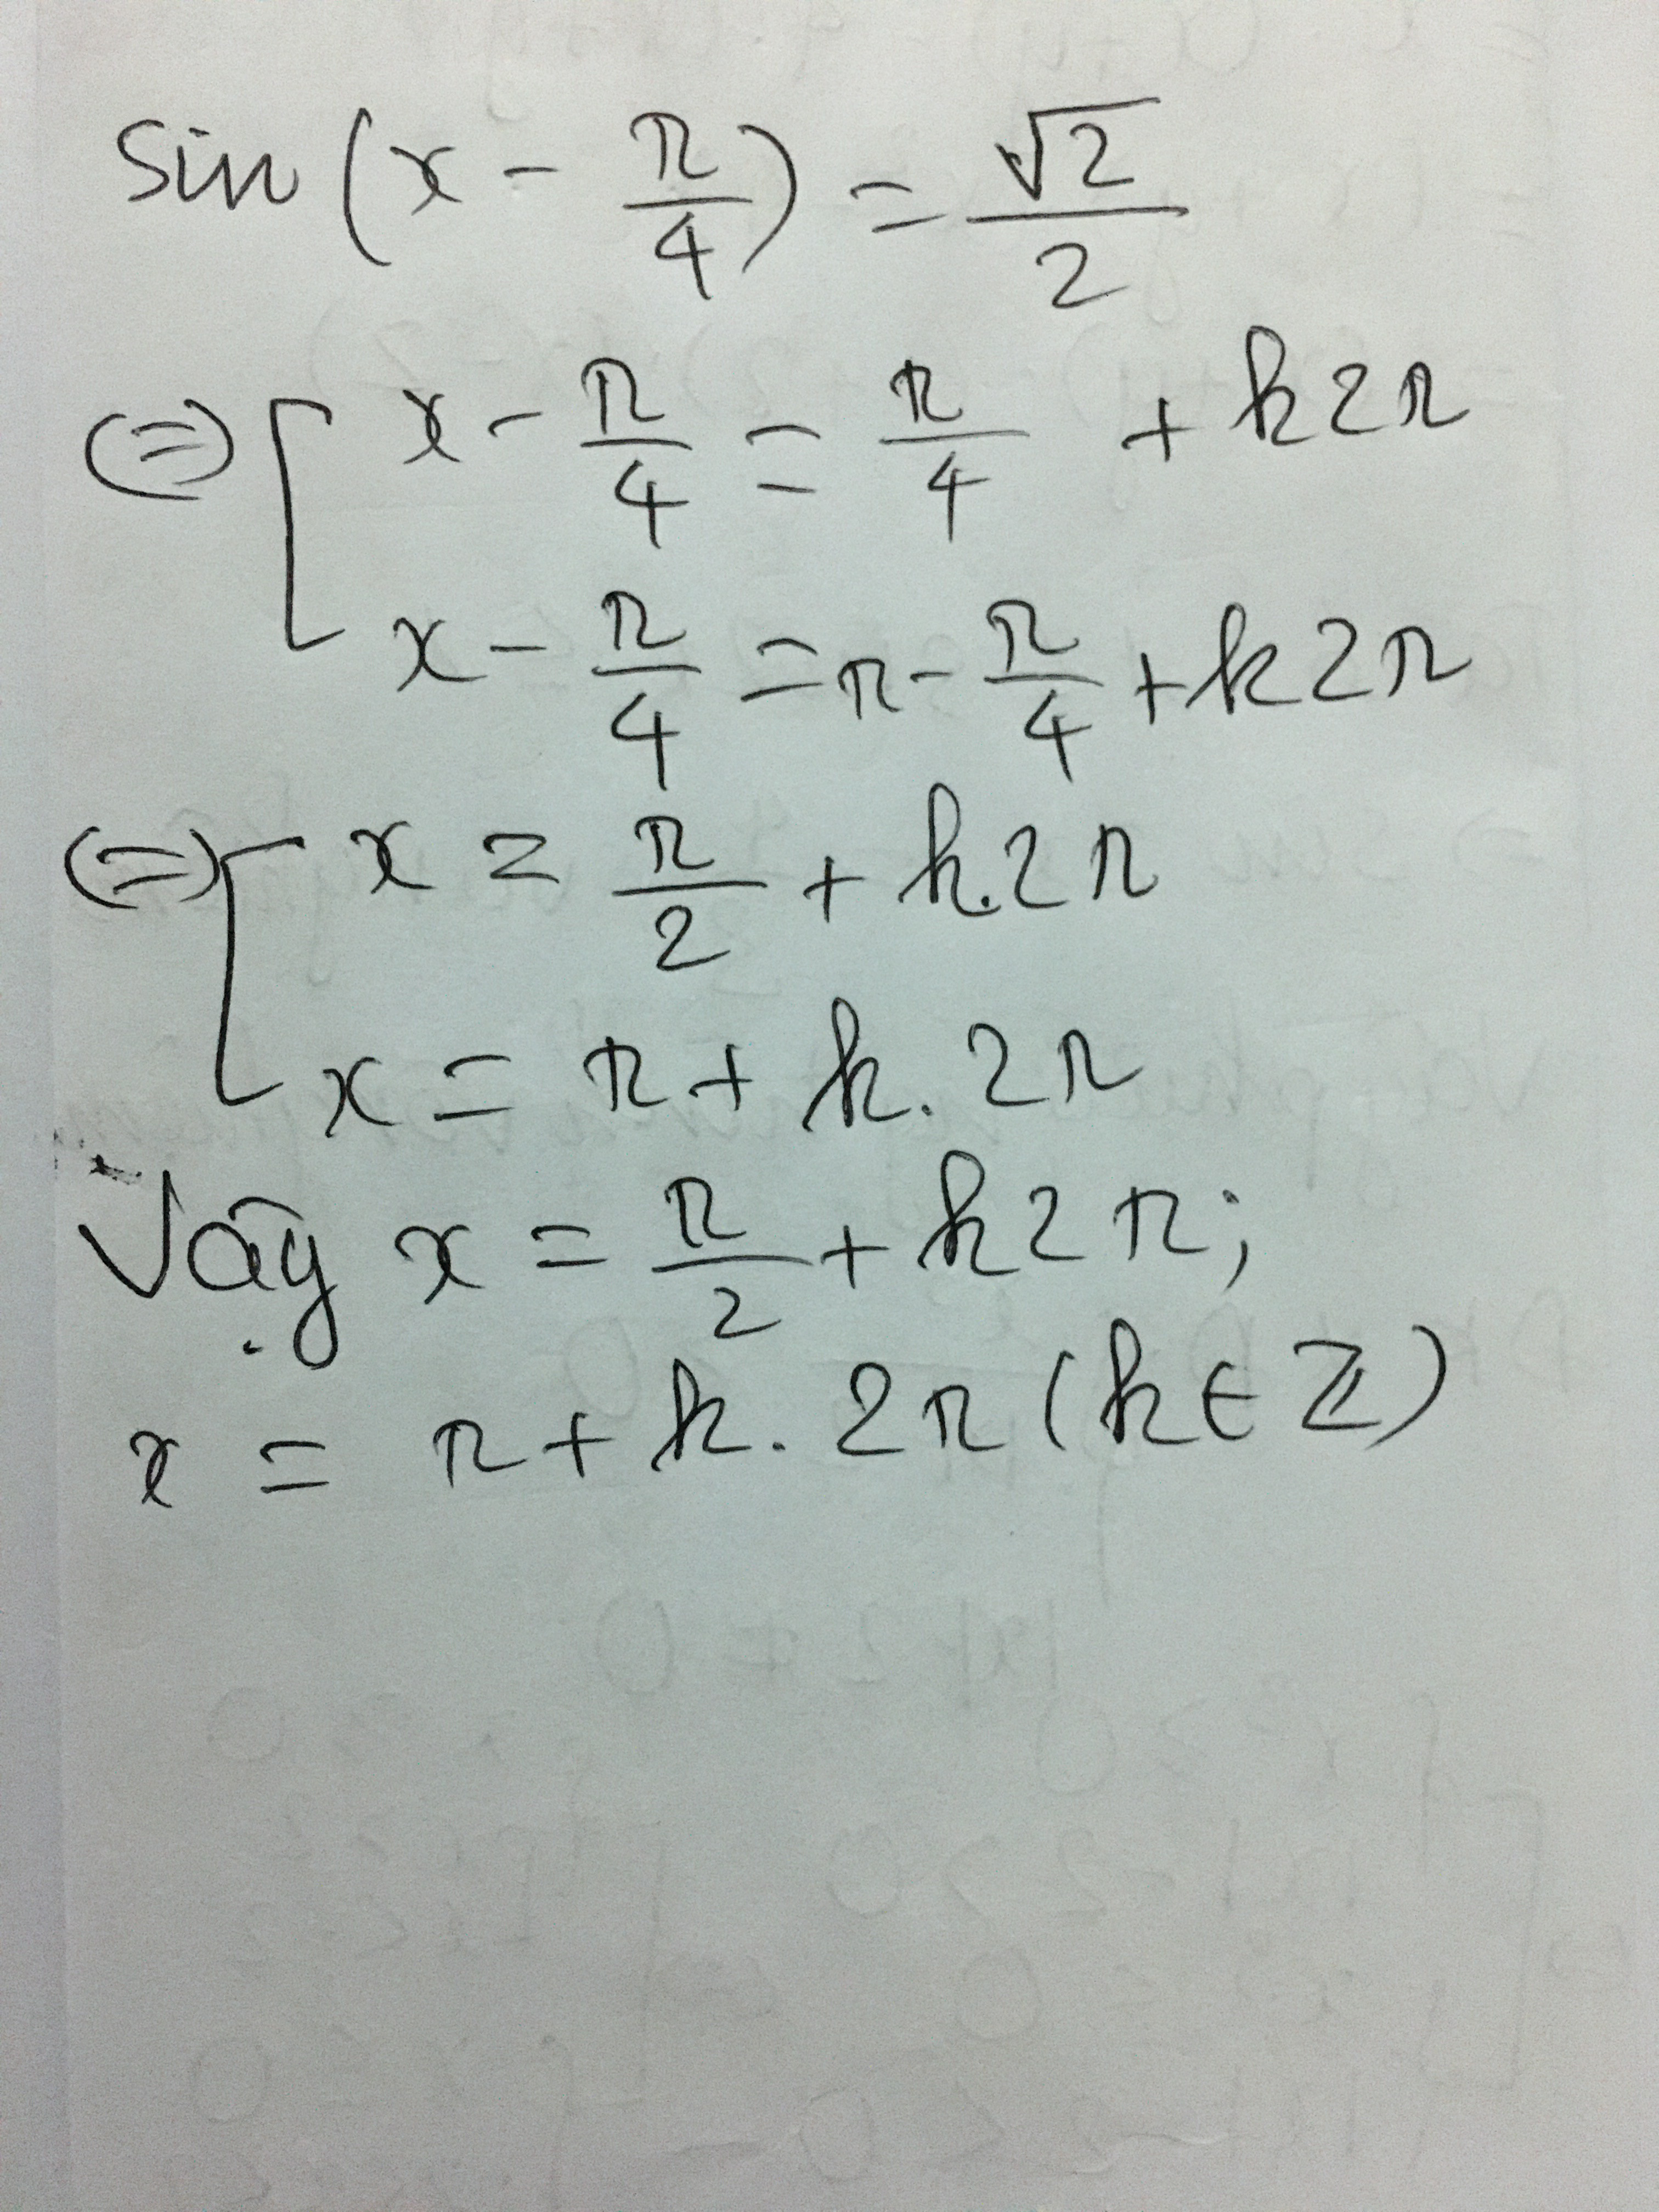 sin (x - π/4) = √2/2
(=) [ x - π/4 = π/4 + k2π
x - π/4 = π - π/4 + k2π
(=) [ x = π/2 + k.2π
x = π + k.2π
Vậy x = π/2 + k2π;
x = π + k.2π (k ∈ ℤ)